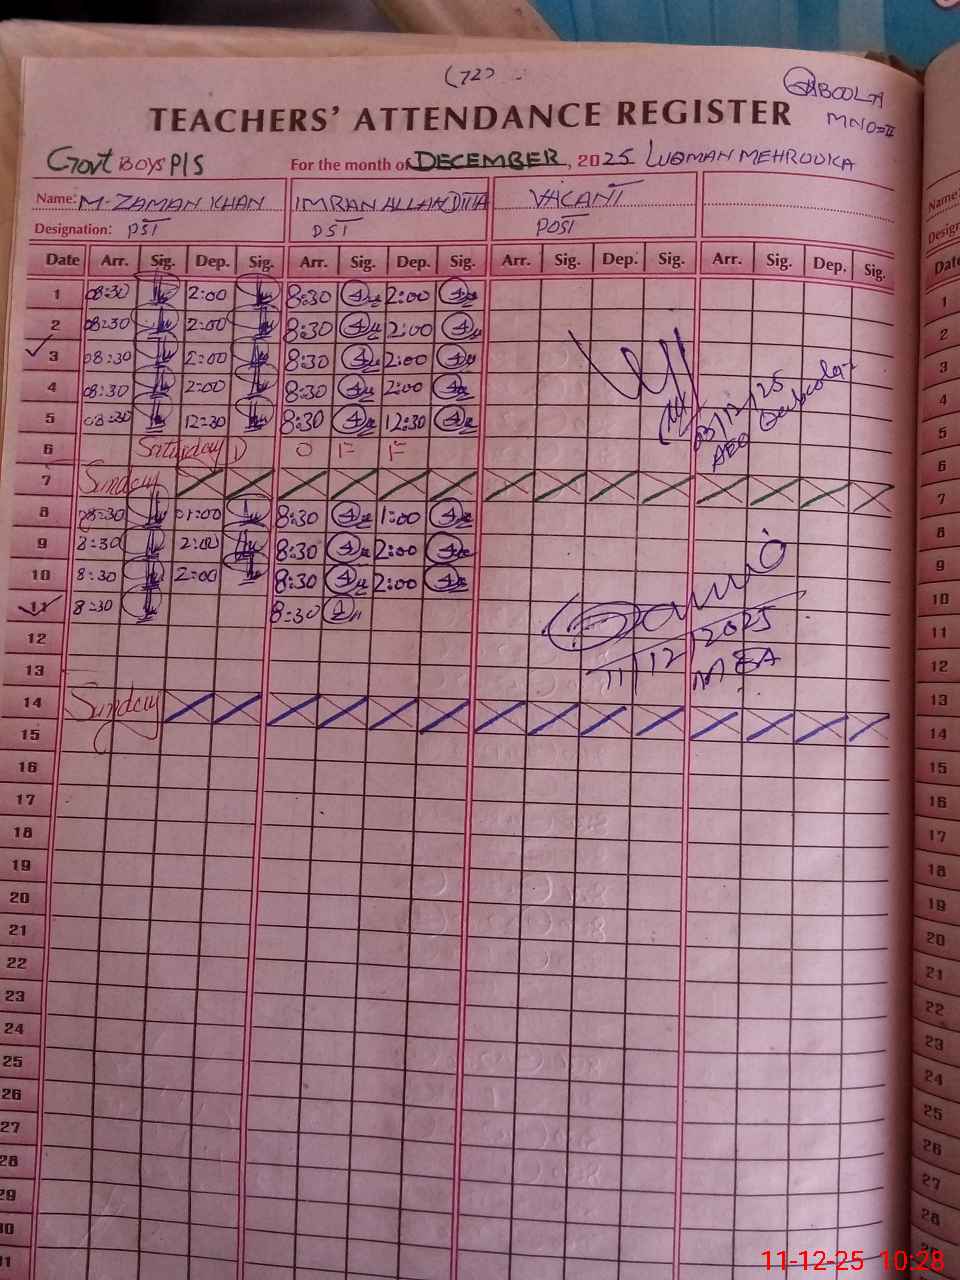 (72)
DABOOLA
TEACHERS' ATTENDANCE REGISTER
MNO=II
Govt BOYS P/S For the month of DECEMBER, 2025 LUQMAN MEHROUKA
Name: M-ZAMAN KHAN IMRAN ALLAH DITTA VACANT
Designation: PST PST POST
Date Arr. Sig. Dep. Sig. Arr. Sig. Dep. Sig. Arr. Sig. Dep. Sig. Arr. Sig. Dep. Sig.
1 08:30 2:00 8:30 2:00
2 08:30 2:00 8:30 2:00
3 08:30 2:00 8:30 2:00
4 08:30 2:00 8:30 2:00
5 08:30 12:30 8:30 12:30
03/12/25
AEO
6 Saturday O F F
7 Sunday
8 08:30 01:00 8:30 1:00
9 8:30 2:00 8:30 2:00
10 8:30 2:00 8:30 2:00
11 8:30 8:30
11/12/2025
MEA
12
13
14 Sunday
15
16
17
18
19
20
21
22
23
24
25
26
27
28
29
30
31
Name
Design
Date
1
2
3
4
5
6
7
8
9
10
11
12
13
14
15
16
17
18
19
20
21
22
23
24
25
26
27
28
11-12-25 10:28